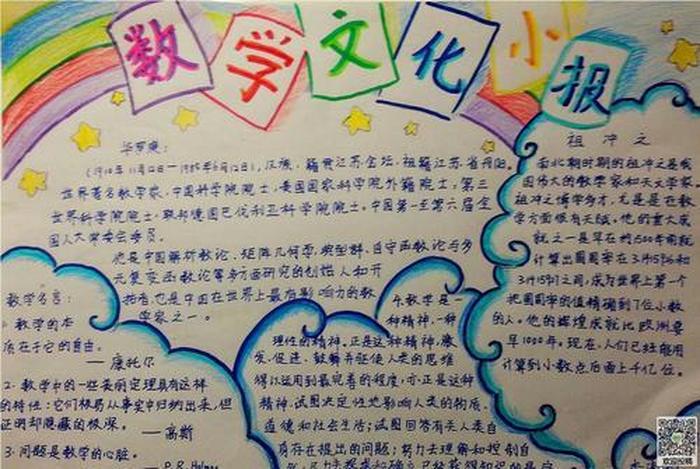 数学文化小报
华罗庚：
（1910年11月12日—1985年6月12日），汉族，籍贯江苏金坛，祖籍江苏省丹阳。
世界著名数学家，中国科学院院士，美国国家科学院外籍院士，第三
世界科学院院士，联邦德国巴伐利亚科学院院士。中国第一至第六届全
国人大常委会委员。
他是中国解析数论、矩阵几何学、典型群、自守函数论与多
元复变函数论等多方面研究的创始人和开
拓者，也是中国在世界上最有影响力的数
学家之一。
祖冲之
南北朝时期的祖冲之是我
国伟大的数学家和天文学家。
祖冲之博学多才，尤其是在数
学方面很有天赋。他的重大成
就之一是早在约1500年前就
计算出圆周率在3.1415926和
3.1415927之间，成为世界上第一个
把圆周率的值精确到7位小数
的人。他的辉煌成就比欧洲要
早1000年。现在，人们已经能用
计算到小数点后面上千亿位。
数学名言：
1. 数学的本
质在于它的自由。
—康托尔
2. 数学中的一些美丽定理具有这样
的特性：它们极易从事实中归纳出来，但
证明却隐藏的极深。
—高斯
3. 问题是数学的心脏。
—P.R.Halmos
4. 数学是一
种精神，一种
理性的精神。正是这种精神，激
发、促进、鼓舞并驱使人类的思维
得以运用到最完善的程度，亦正是这种
精神，试图决定性地影响人类的物质、
道德和社会生活；试图回答有关人类自
身存在提出的问题；努力去理解和控制自